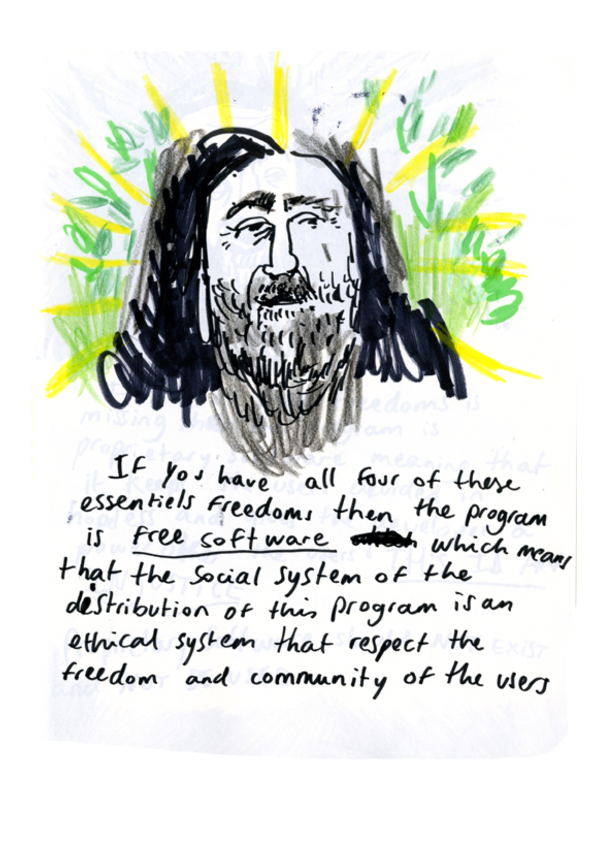 If you have all four of these
essentiels freedoms then the program
is free software which means
that the social system of the
distribution of this program is an
ethical system that respect the
freedom and community of the users